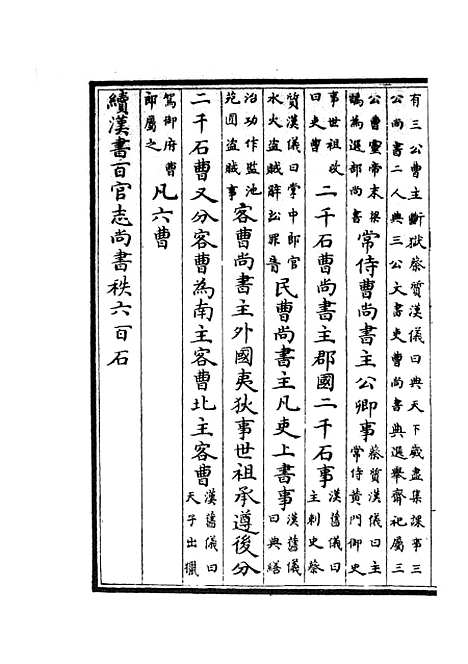 有三公曹主斷獄蔡質漢儀曰典天下歲盡集課事三
公尚書二人典三公文書吏曹尚書典選舉齋祀屬三
公曹靈帝末梁
鵠為選部尚書
常侍曹尚書主公卿事
蔡質漢儀曰主
常侍黃門御史
事世祖改
曰吏曹
二千石曹尚書主郡國二千石事
漢舊儀曰
主刺史蔡
質漢儀曰掌中郎官
水火盜賊辭訟罪眚
民曹尚書主凡吏上書事
漢舊儀
曰典繕
治功作監池
苑囿盜賊事
客曹尚書主外國夷狄事世祖承遵後分
二千石曹又分客曹為南主客曹北主客曹
漢舊儀曰
天子出獵
駕御府曹
郎屬之
凡六曹
續漢書百官志尚書秩六百石